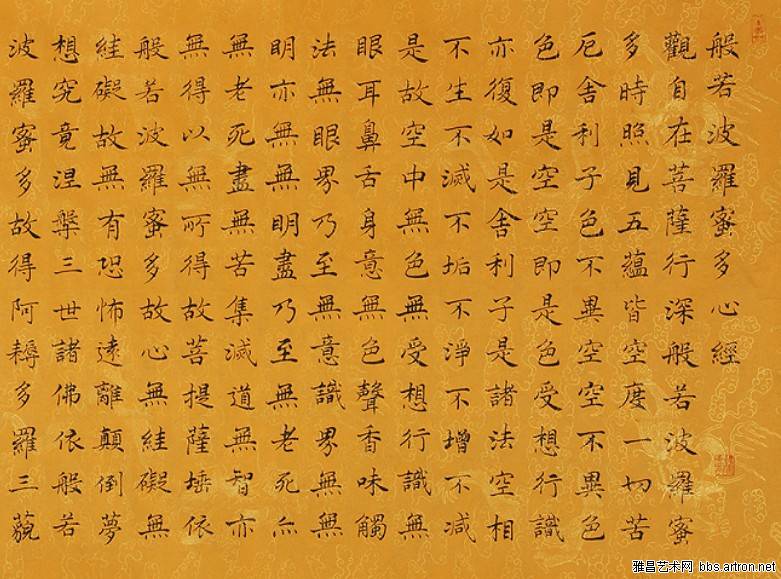 般若波羅蜜多心經
觀自在菩薩行深般若波羅蜜
多時照見五蘊皆空度一切苦
厄舍利子色不異空空不異色
色即是空空即是色受想行識
亦復如是舍利子是諸法空相
不生不滅不垢不淨不增不減
是故空中無色無受想行識無
眼耳鼻舌身意無色聲香味觸
法無眼界乃至無意識界無無
明亦無無明盡乃至無老死亦
無老死盡無苦集滅道無智亦
無得以無所得故菩提薩埵依
般若波羅蜜多故心無絓礙無
絓礙故無有恐怖遠離顛倒夢
想究竟涅槃三世諸佛依般若
波羅蜜多故得阿耨多羅三藐
雅昌艺术网 bbs.artron.net